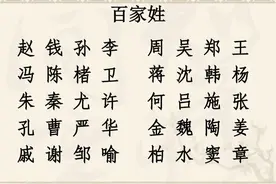 百家姓
赵 钱 孙 李 周 吴 郑 王
冯 陈 楮 卫 蒋 沈 韩 杨
朱 秦 尤 许 何 吕 施 张
孔 曹 严 华 金 魏 陶 姜
戚 谢 邹 喻 柏 水 窦 章